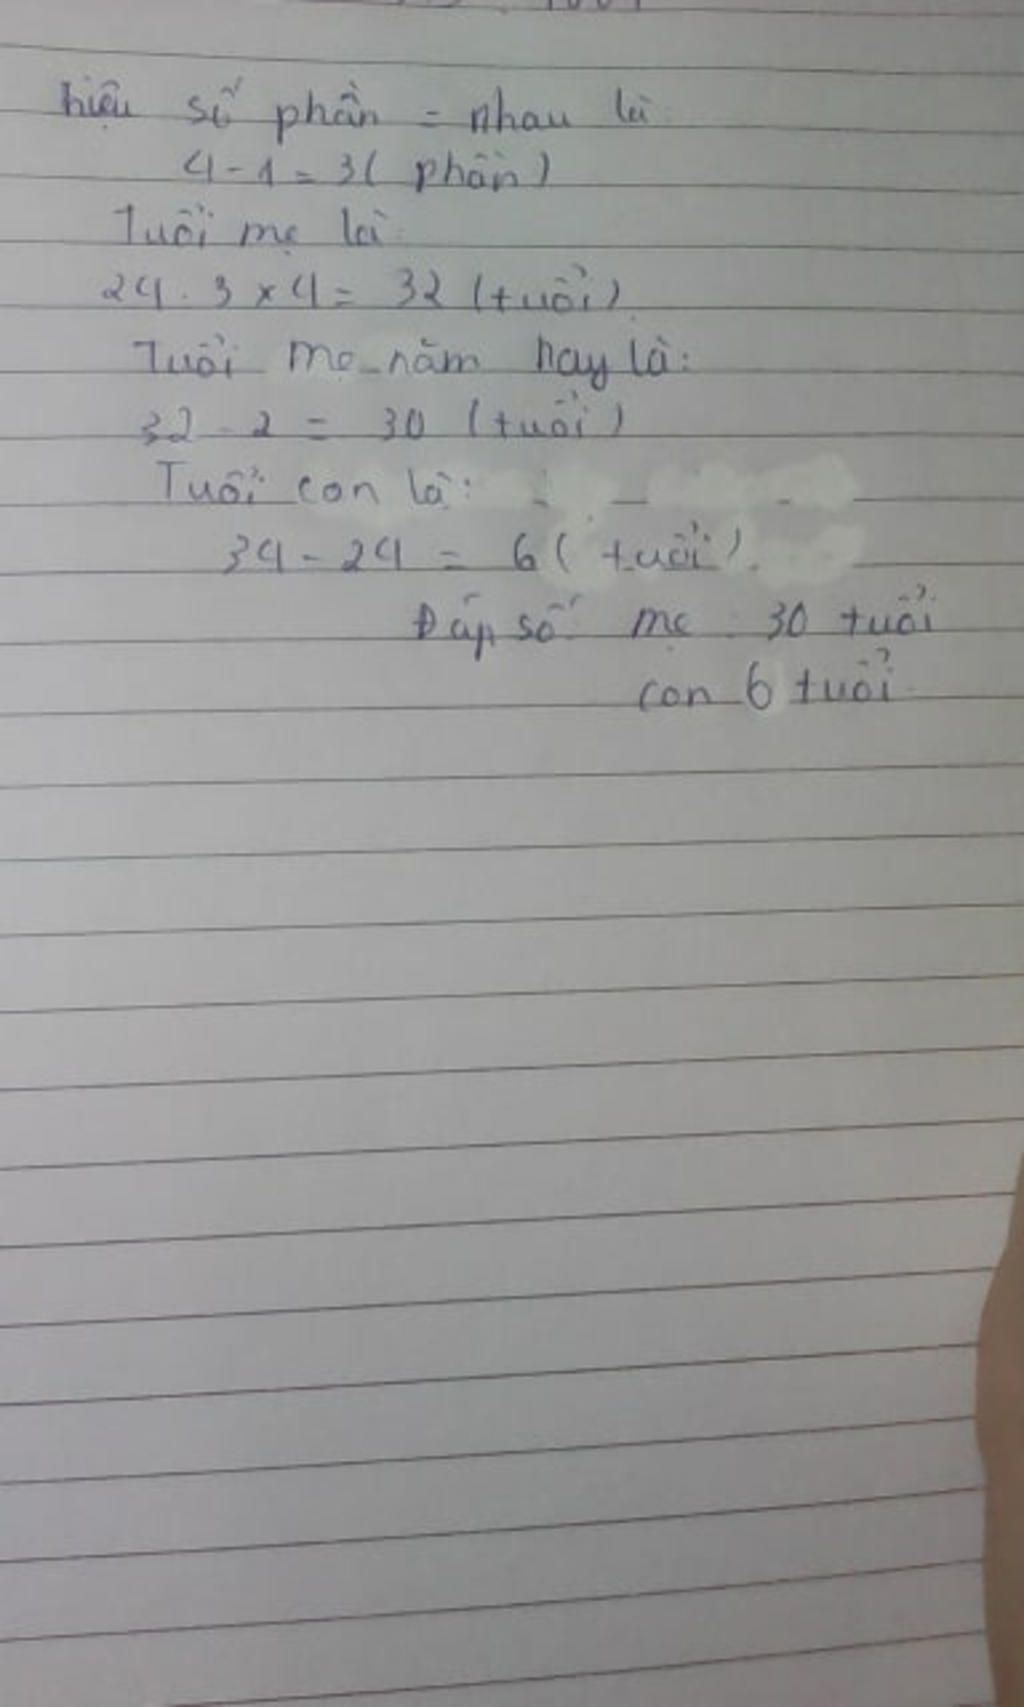 hiệu số phần = nhau là
4 - 1 = 3 ( phần )
Tuổi mẹ là:
24 : 3 x 4 = 32 (tuổi)
Tuổi mẹ năm nay là:
32 - 2 = 30 (tuổi)
Tuổi con là:
34 - 24 = 6 ( tuổi ).
Đáp số: mẹ : 30 tuổi
con 6 tuổi